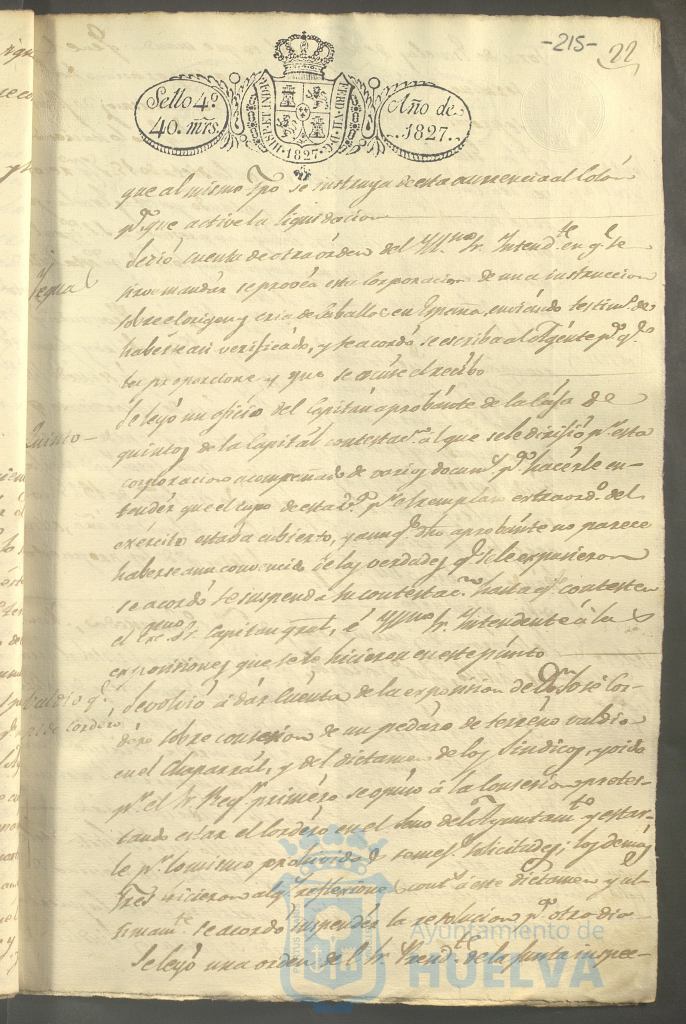 -215- 22
Sello 4º
40. mrs.
HISP. ET IND. R. FERD. VII. D. G. 1827.
Año de
1827.
que al mismo tpo se instruya de esta ocurrencia al Colón
pª que active la liquidacion
Se dió cuenta de otra órden del Yllmo Sr. Intendte en q. se
sirve mandár se provéa esta Corporacion de una instruccion
Yegua
sobre el origen y cria de Caballos en España, enviándo testimº de
haberse asi verificádo, y se acordó se escriba al Agénte pª qº
les proporcione y que se acuse el recibo
Se leyó un oficio del Capitán aprobánte de la Cája de
Quinto
quintos de la Capitál contestacn. al que se le dirijió pr. esta
corporacion acompañado de varios documtos pª hacérle en-
tendér que el cupo de esta Vª pª el remplazo extraordº del
exercito estaba cubierto, y aunq. dho aprobánte no parece
haberse aun convencido de las verdades q. se le expusieron
se acordó se suspenda su contestacn. hasta q. contesten
el Sr. Capitan gral, é Yllmo Sr. Intendénte á la
exposiciones que se les hicieron en este púnto
Se volvió á dár cuénta de la exposision de Dn. José Cor-
Baldio q.
Cordero
déro sobre consesion de un pedázo de terréno valdío
en el Chaparrál, y del dictamen de los Síndicos, y oido
pr. el Sr. Regr. priméro se opuso á la consesion protes-
tando estar el Cordéro en el seno del Ayuntamto y estar-
le pr. lo mismo prohivido semes. solicitudes; los demás
Sres hicieron algs. reflexiones contª á este dictamen y ul-
timamte. se acordó suspendér la resolucion pª otro dia
Se leyó una orden del Sr. Presidte. de la Junta inspec-
Ayuntamiento de
HUELVA